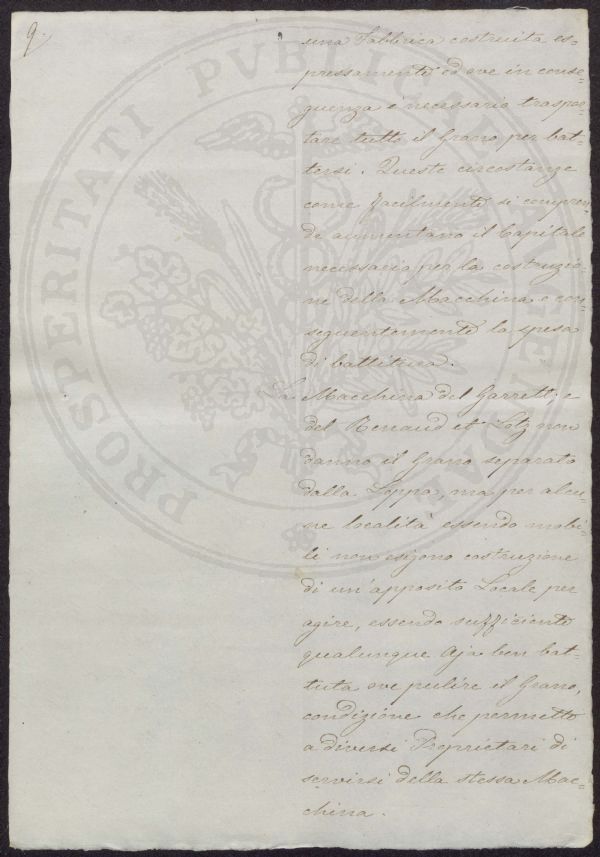 9.
una Fabbrica costruita es-
pressamente ed ove in conse-
guenza è necessario traspor-
tare tutto il Grano per bat-
tersi. Queste circostanze
come facilmente si compren-
de aumentano il Capitale
necessario per la costruzio-
ne della Macchina e con-
seguentemente la spesa
di battitura.
La Macchina del Garrett e
del Renaud et Lotz non
danno il Grano separato
dalla Loppa, ma per alcu-
ne località essendo mobi-
li non esigono costruzione
di un'apposito Locale per
agire, essendo sufficiente
qualunque Aja ben bat-
tuta ove pulire il Grano,
condizione che permette
a diversi Proprietari di
servirsi della stessa Mac-
china.
PROSPERITATI PVBLICAE AVGENDAE